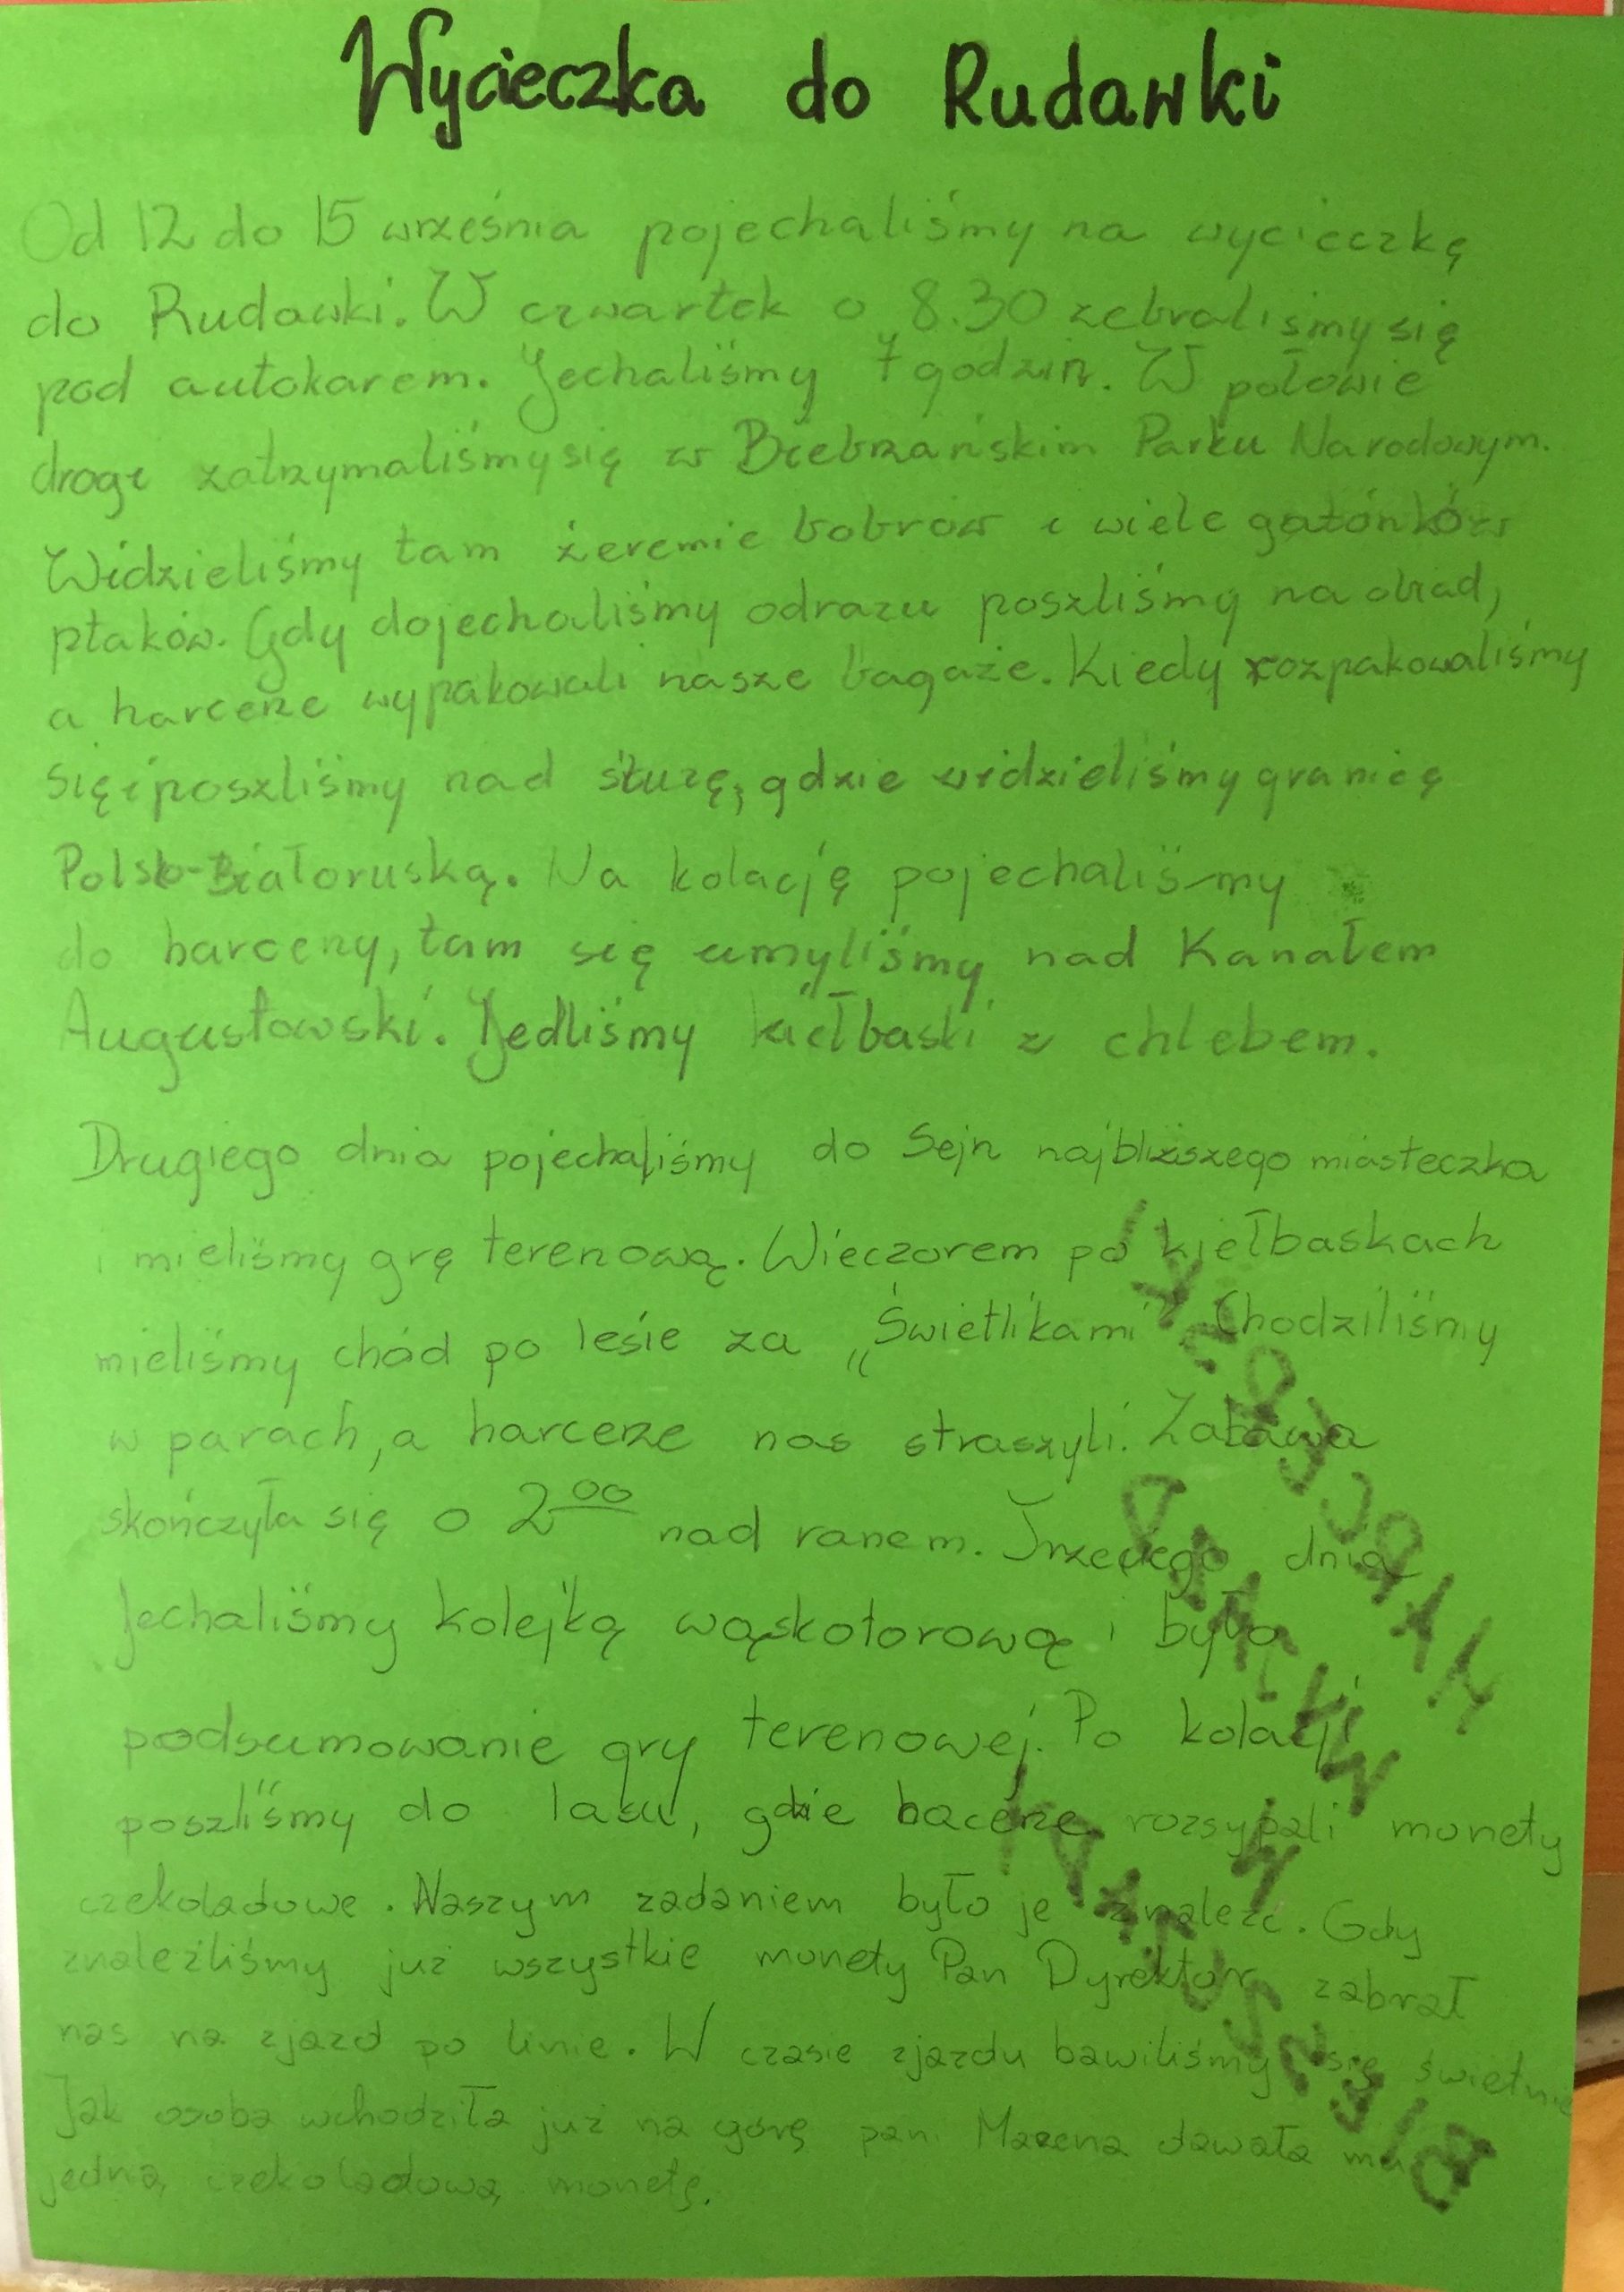 Wycieczka do Rudawki
Od 12 do 15 września pojechaliśmy na wycieczkę
do Rudawki. W czwartek o 8.30 zebraliśmy się
pod autokarem. Jechaliśmy 7 godzin. W połowie
drogi zatrzymaliśmy się w Biebrzańskim Parku Narodowym.
Widzieliśmy tam żeremie bobrów i wiele gatónków
ptaków. Gdy dojechaliśmy odrazu poszliśmy na obiad,
a harcerze wypakowali nasze bagaże. Kiedy rozpakowaliśmy
się i poszliśmy nad śluzę, gdzie widzieliśmy granicę
Polsko-Białoruską. Na kolację pojechaliśmy
do harceny, tam się umyliśmy nad Kanałem
Augustowski. Jedliśmy kiełbaski z chlebem.
Drugiego dnia pojechaliśmy do Sejn najbliższego miasteczka
i mieliśmy grę terenową. Wieczorem po kiełbaskach
mieliśmy chód po lesie za „Świetlikami" Chodziliśmy
w parach, a harceze nas straszyli. Zabawa
skończyła się o 2 00 nad ranem. Trzeciego dnia
Jechaliśmy kolejką wąskotorową i było
podsumowanie gry terenowej. Po kolacji
poszliśmy do lasu, gdzie haceze rozsypali monety
czekoladowe. Naszym zadaniem było je znaleźć. Gdy
znaleźliśmy już wszystkie monety Pan Dyrektor zabrał
nas na zjazd po linie. W czasie zjazdu bawiliśmy się świetnie
Jak osoba wchodziła już na górę pani Marzena dawała mu
jedną czekoladową monetę.